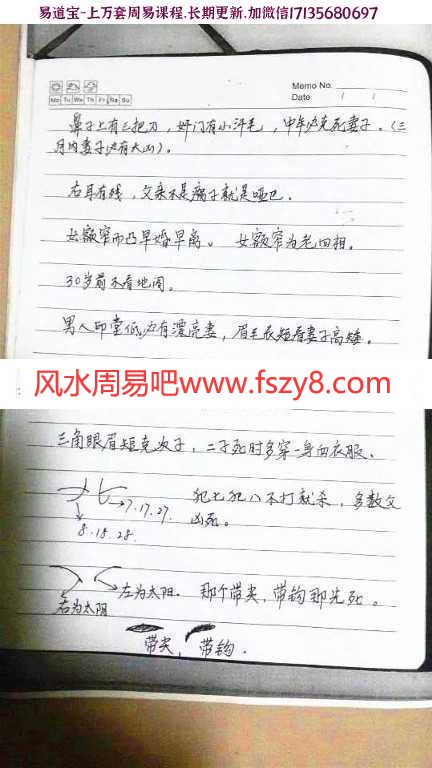 易道宝-上万套周易课程.长期更新.加微信17135680697
Memo No.
Mo Tu We Th Fr Sa Su
Date / /
鼻子上有三把刀，奸门有小汗毛，中年必克死妻子。（三
月内妻子必有大山）。
右耳有残，父亲不是瘸子就是哑巴。
女额窄而凸早婚早离。 女额窄为老回相。
30岁前不看地阁。
男人印堂低必有漂亮妻，眉毛长短看妻子高矮。
风水周易吧www.fszy8.com
三角眼眉短克次子，二子死时多穿一身白衣服。
7.17.27.
8.18.28.
犯七犯八不打就杀，多数父
凶死。
左为太阳. 那个带尖，带钩那先死。
右为太阴
带尖， 带钩.